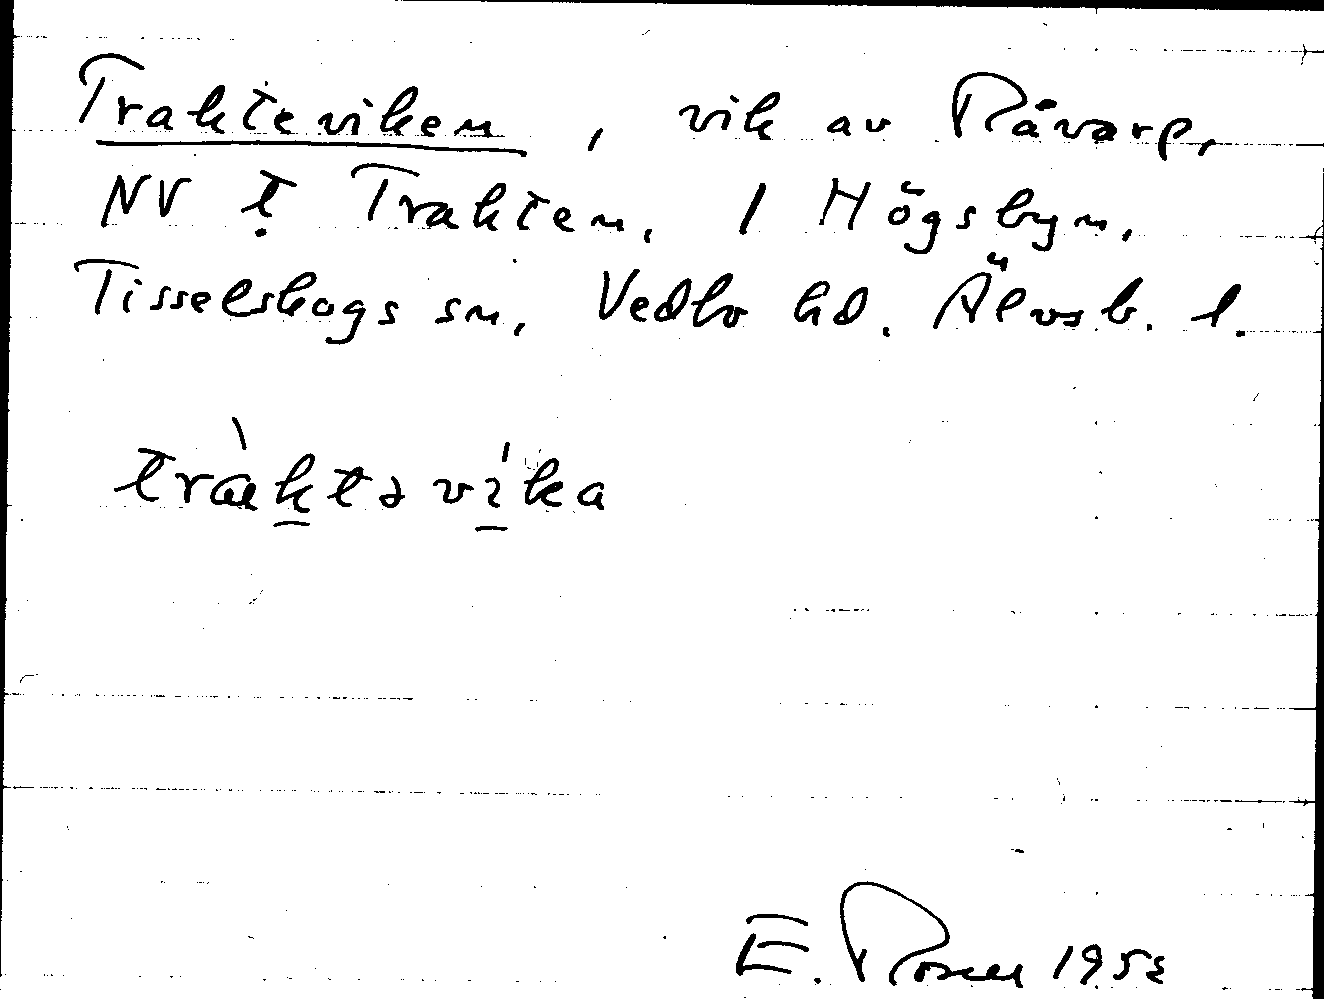 Trakteviken, vik av Råvarp,
NV ṭ Trakten. / Högsbyn,
Tisselskogs sn, Vedbo hd. Älvsb. l.
tràktəvíka
E. Rosen 195